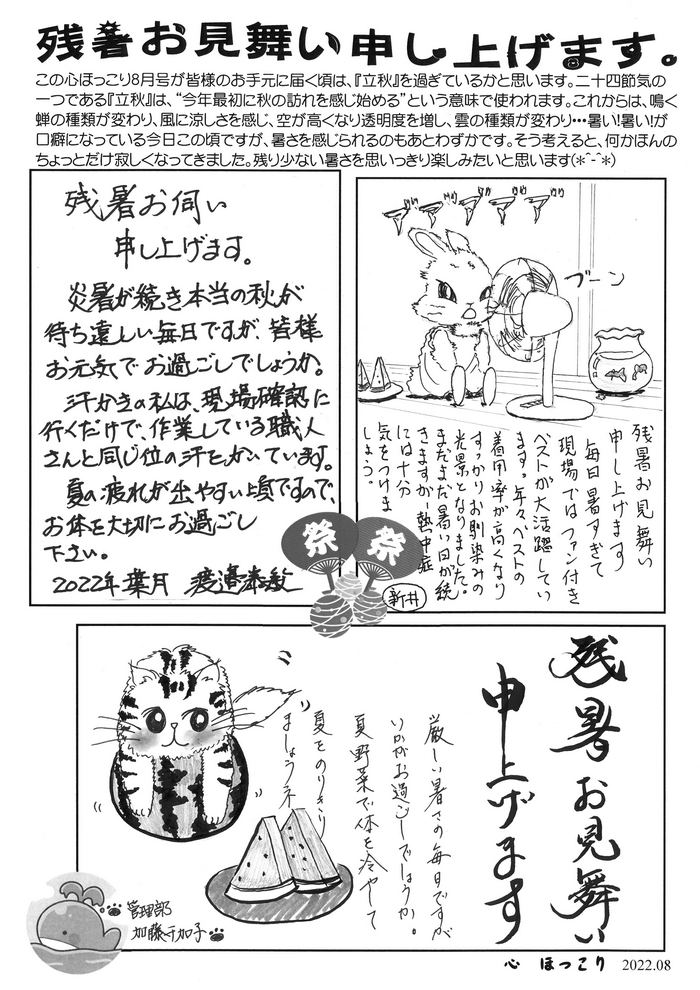 残暑お見舞い申し上げます。
この心ほっこり8月号が皆様のお手元に届く頃は、『立秋』を過ぎているかと思います。二十四節気の
一つである『立秋』は、“今年最初に秋の訪れを感じ始める”という意味で使われます。これからは、鳴く
蝉の種類が変わり、風に涼しさを感じ、空が高くなり透明度を増し、雲の種類が変わり・・・暑い!暑い!が
口癖になっている今日この頃ですが、暑さを感じられるのもあとわずかです。そう考えると、何かほんの
ちょっとだけ寂しくなってきました。残り少ない暑さを思いっきり楽しみたいと思います(*^-^*)
残暑お伺い
申し上げます。
炎暑が続き本当の秋が
待ち遠しい毎日ですが、皆様
お元気でお過ごしでしょうか。
汗かきの私は、現場確認に
行くだけで、作業している職人
さんと同じ位の汗をかいています。
夏の疲れが出やすい頃ですので、
お体を大切にお過ごし
下さい。
2022年葉月 渡邉泰敏
ブーン
残暑お見舞い
申し上げます
毎日暑すぎて
現場ではファン付き
ベストが大活躍してい
ます。年々ベストの
着用率が高くなり
すっかりお馴染みの
光景となりました。
まだまだ暑い日が続
きますが、熱中症
には十分
気をつけま
しょう。
新井
祭
祭
残暑お見舞い
申し上げます
厳しい暑さの毎日ですが
いかがお過ごしでしょうか。
夏野菜で体を冷やして
夏をのりきり
ましょうネ
管理部
加藤千加子
心 ほっこり 2022.08